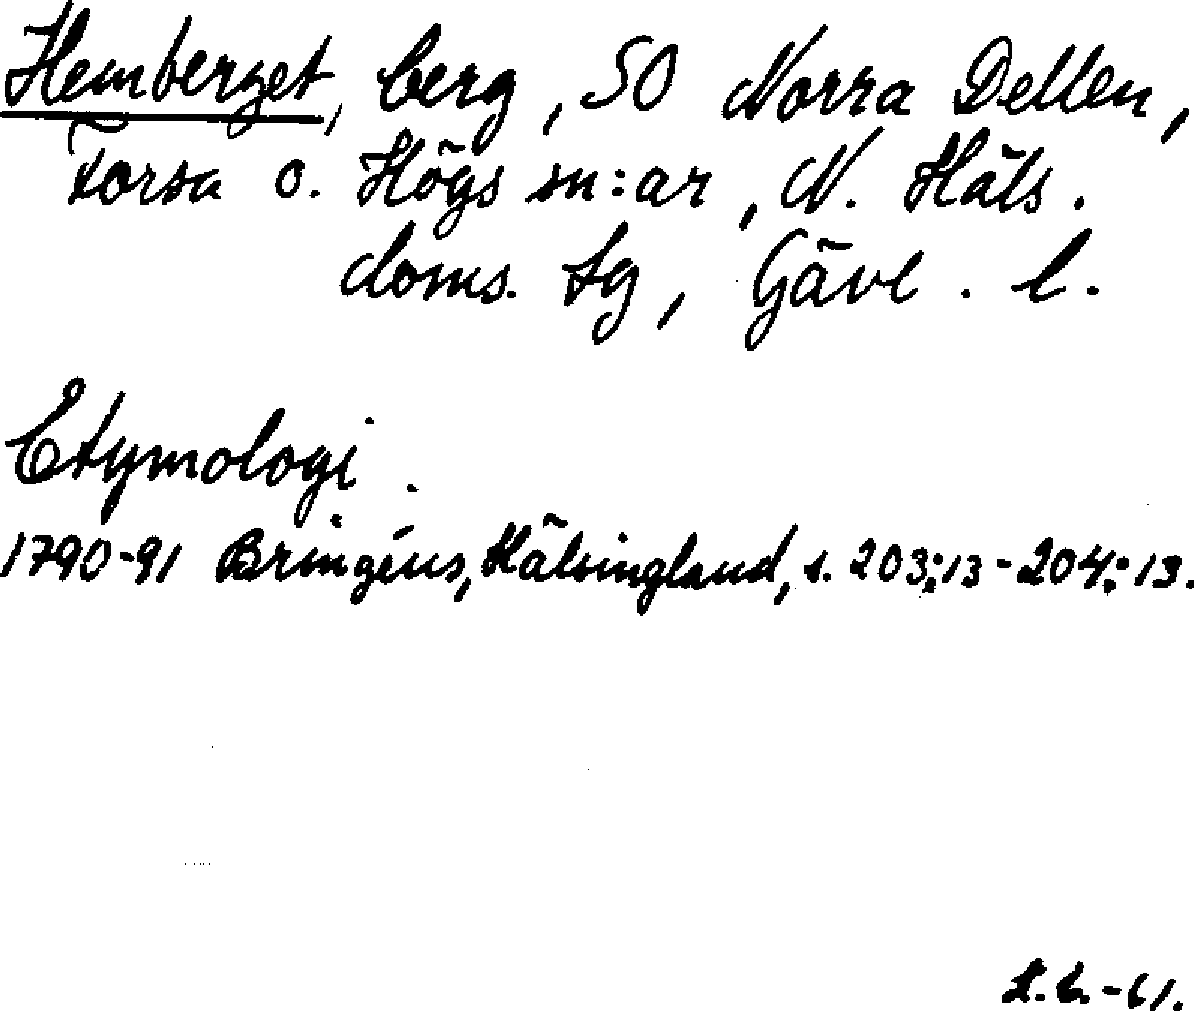 Hemberget, berg, SO Norra Dellen,
Forsa o. Högs sn:ar, N. Häls.
doms. tg, Gävl. l.
Etymologi.
1790-91 Bringéus, Hälsingland, s. 203:13-204:13.
-61.